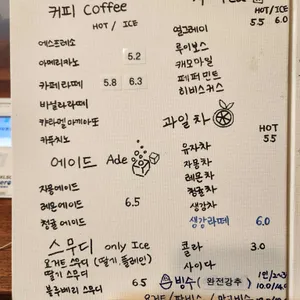 커피 Coffee
HOT / ICE
에스프레소
아메리카노 5.2
카페라떼 5.8 6.3
바닐라라떼
캬라멜마끼아또
카푸치노
에이드 Ade
자몽에이드
레몬에이드 6.5
청귤에이드
스무디 only Ice
요거트 스무디 (딸기, 플레인)
딸기 스무디
블루베리 스무디 6.5
HOT / ICE
얼그레이 5.5 6.0
루이보스
캐모마일
페퍼민트
히비스커스
과일차
HOT
유자차 5.5
자몽차
레몬차
청귤차
생강차
생강라떼 6.0
콜라 3.0
사이다
빙수 (완전강추)